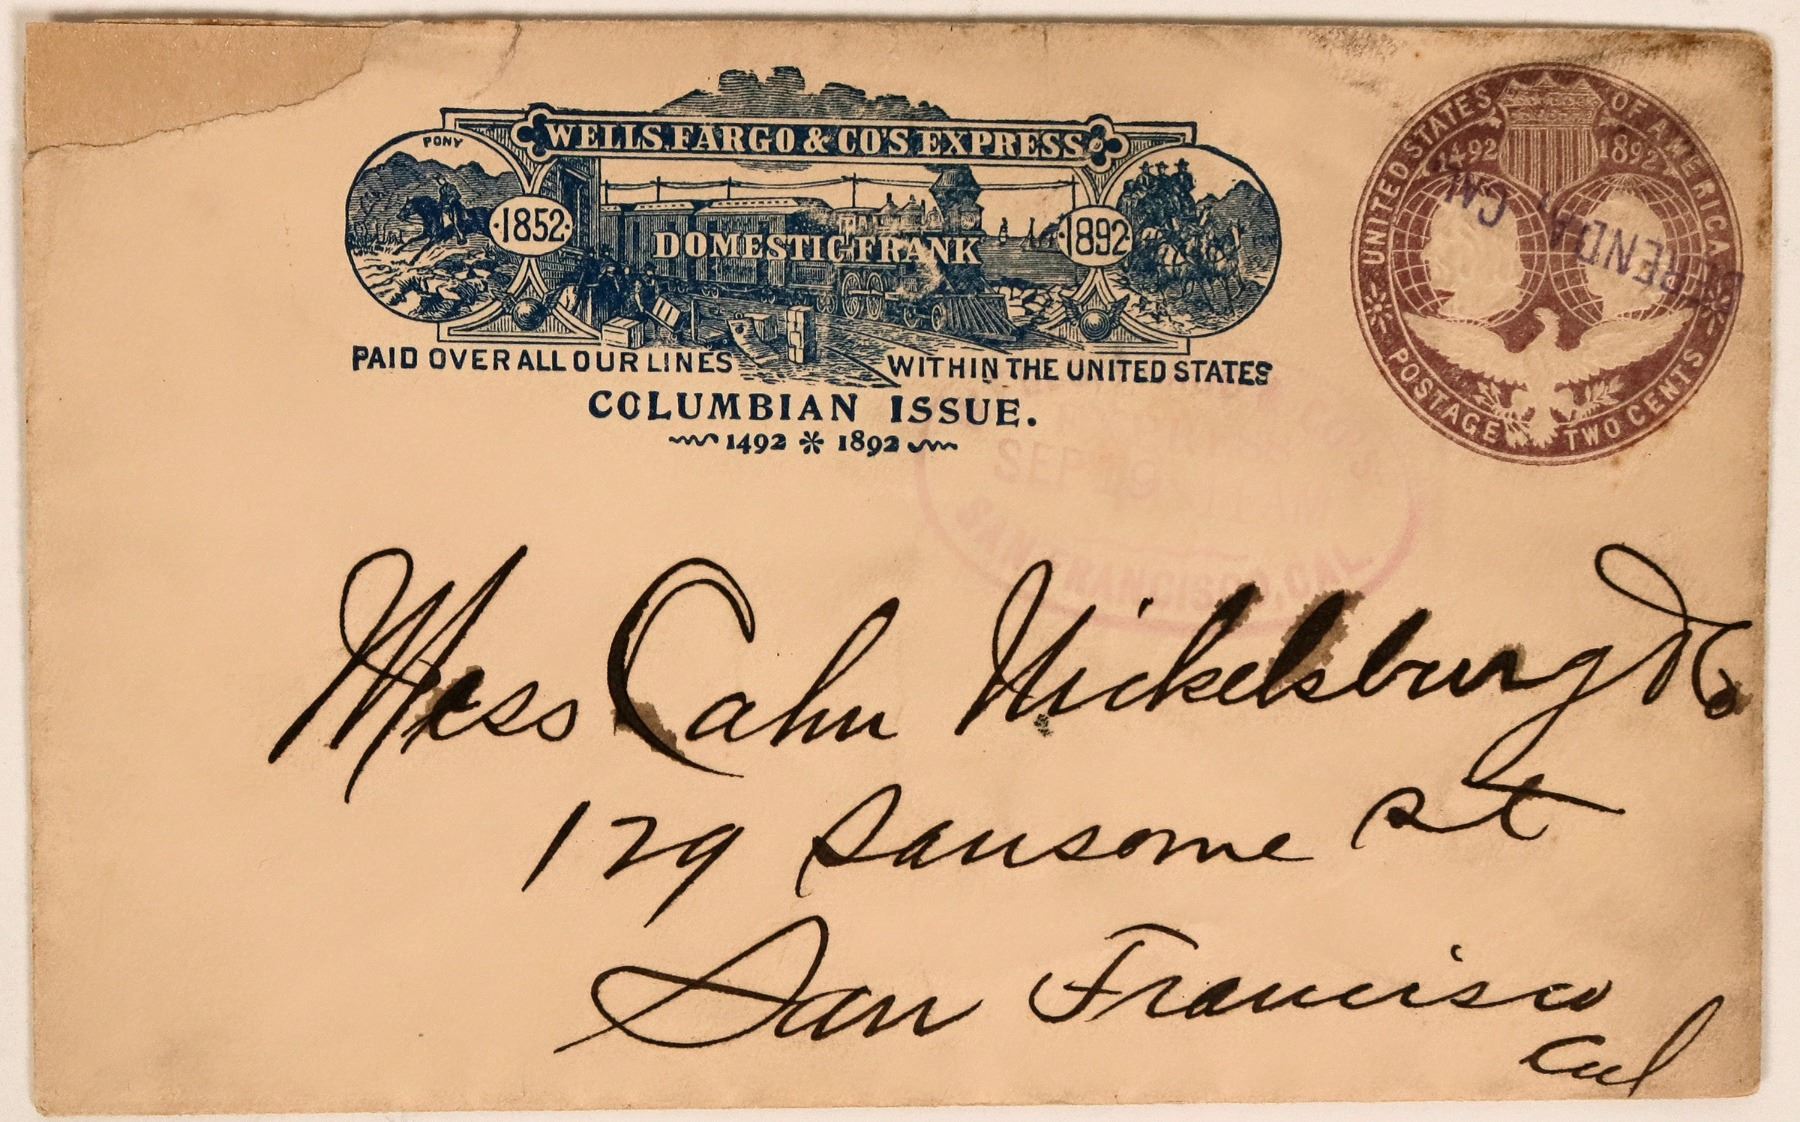 WELLS, FARGO & CO'S EXPRESS
PONY
1852
1892
DOMESTIC FRANK
PAID OVER ALL OUR LINES WITHIN THE UNITED STATES
COLUMBIAN ISSUE.
1492 1892
UNITED STATES OF AMERICA
1492 1892
POSTAGE TWO CENTS
BERENDA, CAL.
SEP 19 11 AM
SAN FRANCISCO, CAL.
Mess Cahn Nickelsburg & Co
129 Sansome St
San Francisco
Cal